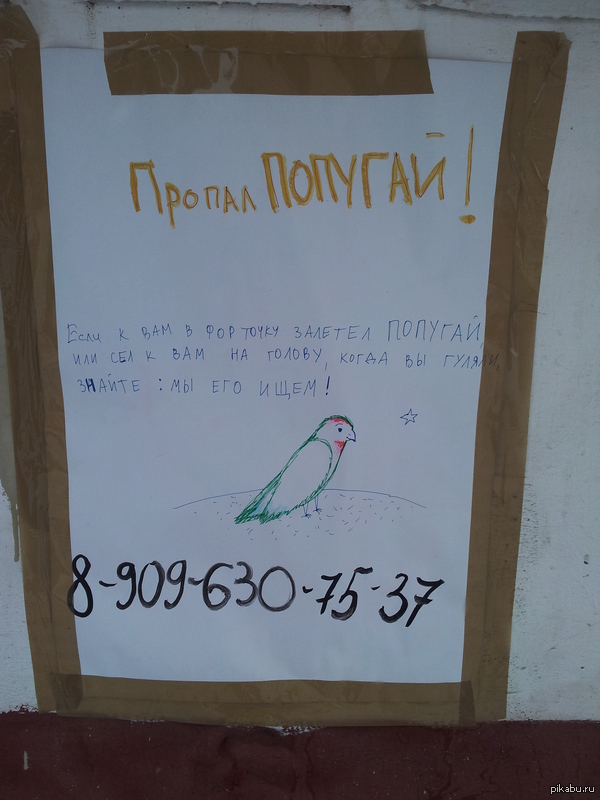 Пропал ПОПУГАЙ!
Если к вам в форточку залетел ПОПУГАЙ,
или сел к вам на голову, когда вы гуляли,
знайте: мы его ищем!
8-909-630-75-37
pikabu.ru